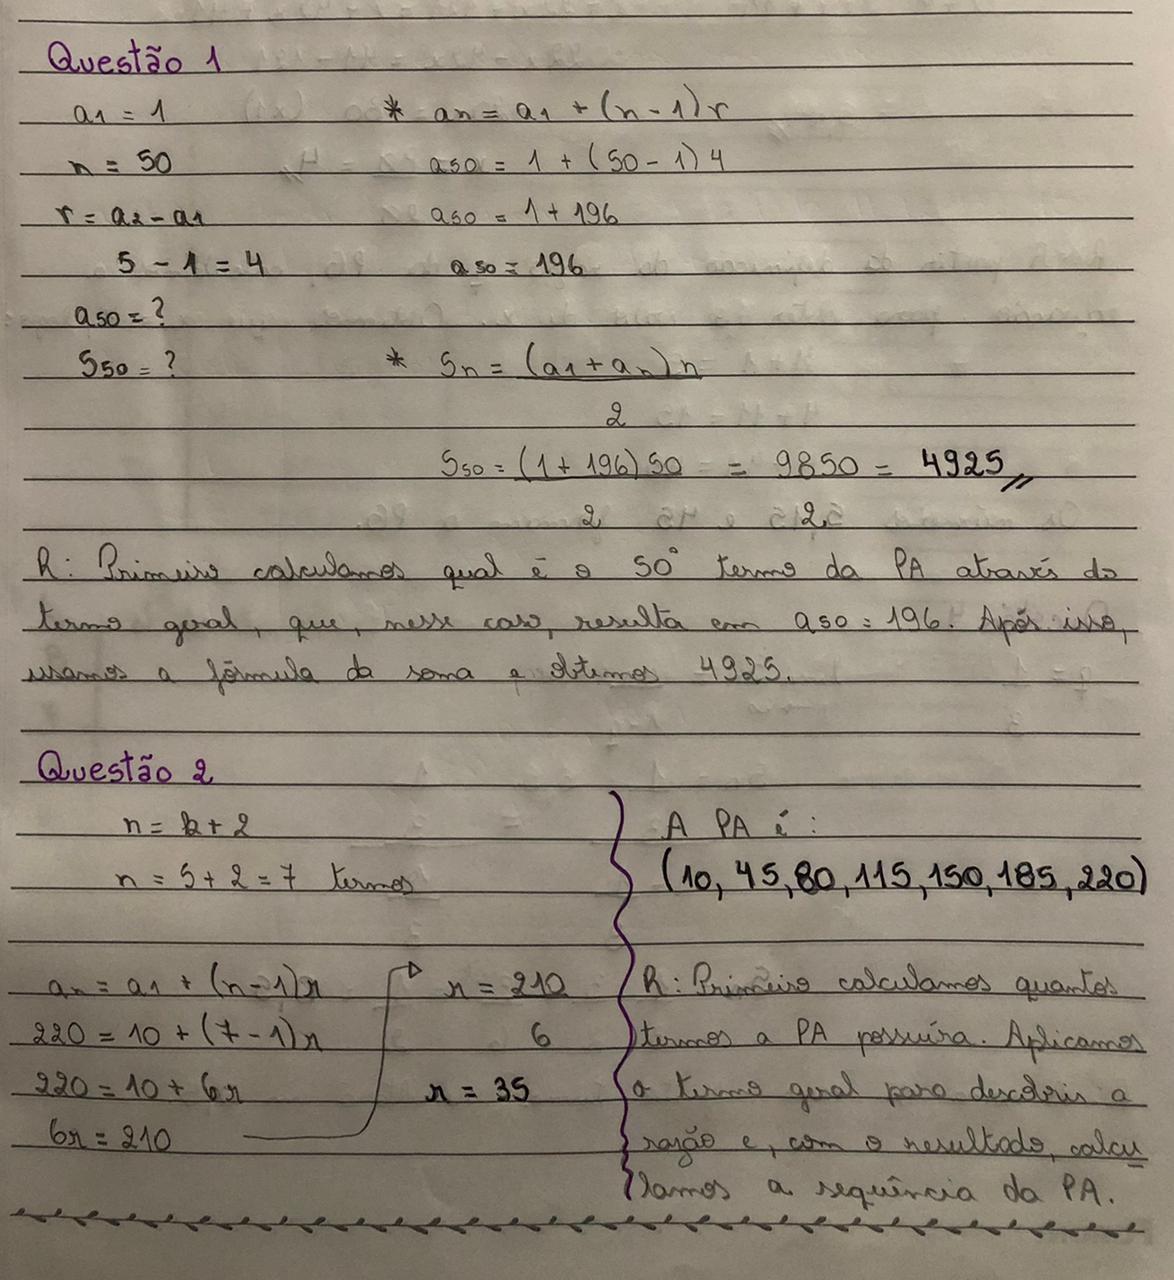 Questão 1
a1 = 1
n = 50
r = a2 - a1
5 - 1 = 4
a50 = ?
S50 = ?
* an = a1 + (n - 1) r
a50 = 1 + (50 - 1) 4
a50 = 1 + 196
a50 = 196
* Sn = (a1 + an) n
2
S50 = (1 + 196) 50 = 9850 = 4925
2 2
R: Primeiro calculamos qual é o 50° termo da PA através do
termo geral, que, nesse caso, resulta em a50 = 196. Após isso,
usamos a fórmula da soma e obtemos 4925.
Questão 2
n = k + 2
n = 5 + 2 = 7 termos
an = a1 + (n - 1) r
220 = 10 + (7 - 1) r
220 = 10 + 6r
6r = 210
r = 210
6
r = 35
A PA é :
(10, 45, 80, 115, 150, 185, 220)
R: Primeiro calculamos quantos
termos a PA possuíra. Aplicamos
o termo geral para descobrir a
razão e, com o resultado, calcu
lamos a sequência da PA.